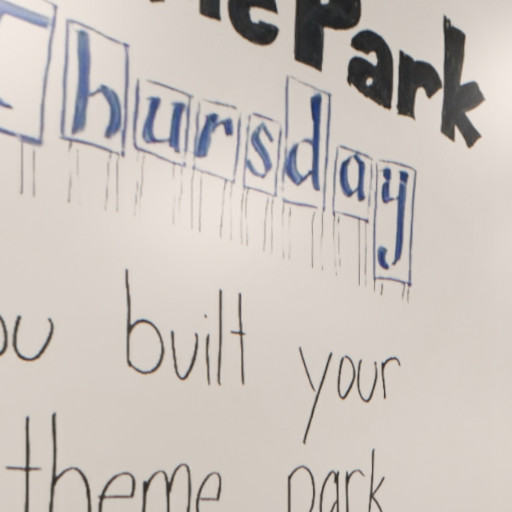 Park
Thursday
built your
theme park